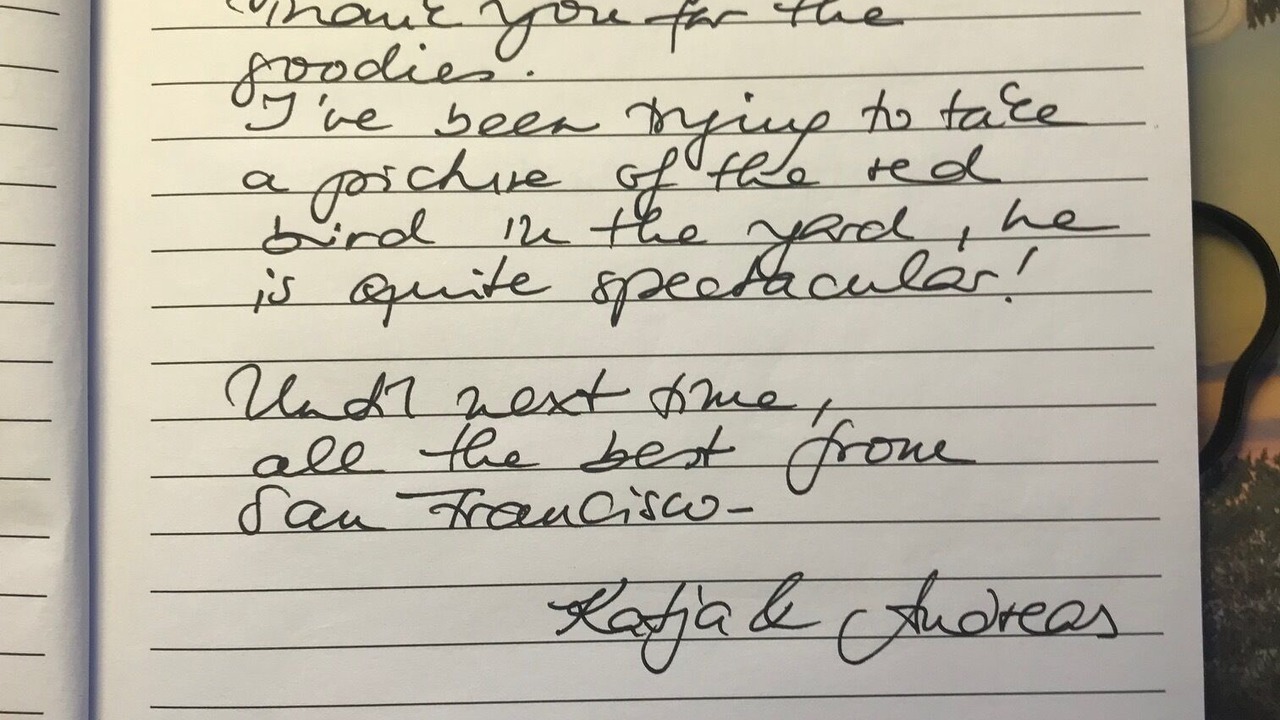 Thank you for the
goodies.
I've been trying to take
a picture of the red
bird in the yard, he
is quite spectacular!
Until next time,
all the best from
San Francisco-
Katja & Andreas